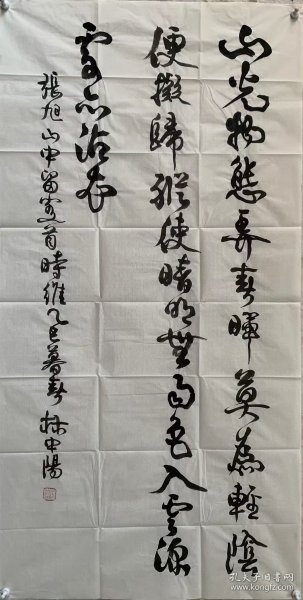 山光物態弄春暉莫為輕陰
便擬歸縱使晴明無雨色入雲深
處亦沾衣
張旭山中留客一首時維乙巳暮春 林中陽
孔夫子旧书网
www.kongfz.com